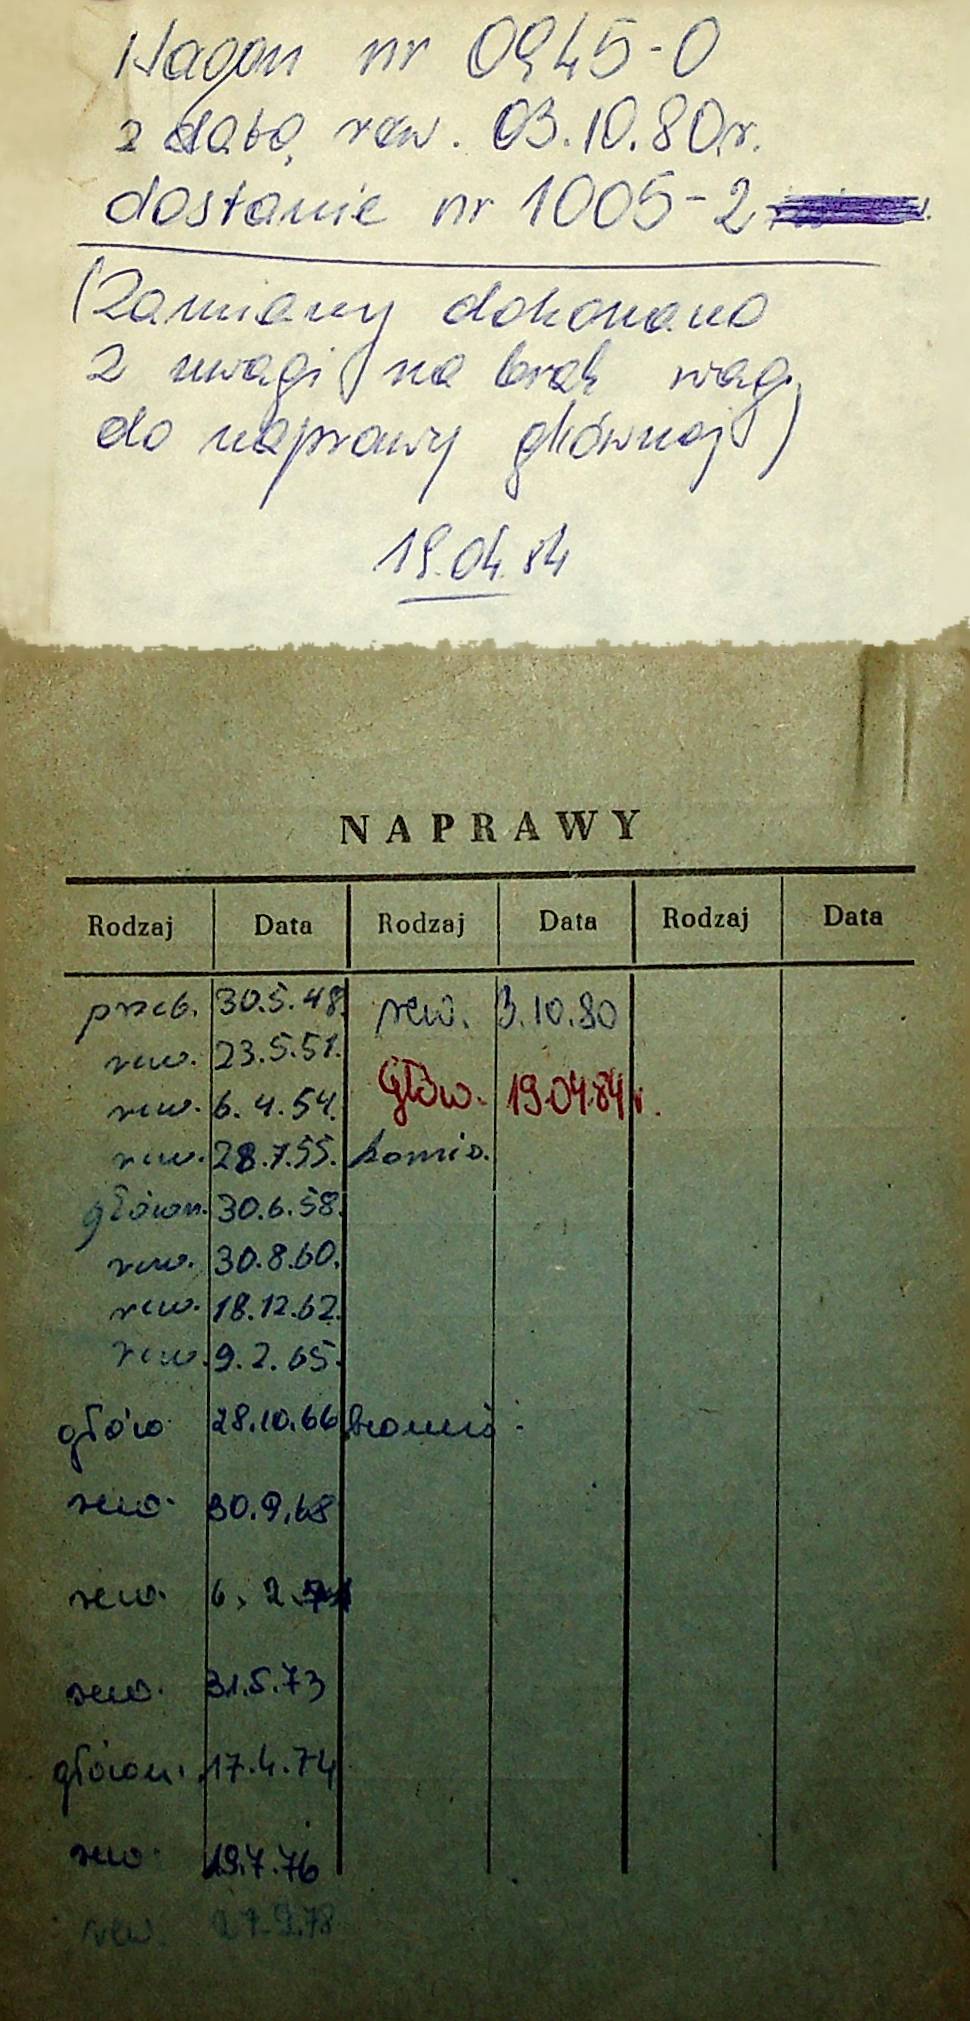 Wagon nr 0945-0
z datą rew. 03.10.80r.
dostanie nr 1005-2
(Zamiany dokonano
z uwagi na brak wag.
do naprawy głównej)
19.04.84
NAPRAWY
Rodzaj Data Rodzaj Data Rodzaj Data
przeb. 30.5.48. rew. 3.10.80
rew. 23.5.51.
rew. 6.4.54. Głów. 19.04.84r.
rew. 28.7.55.
główn. 30.6.58.
rew. 30.8.60.
rew. 18.12.62.
rew. 9.2.65.
głów 28.10.66
rew. 30.9.68
rew. 6.2.
rew. 31.5.73
główn. 17.4.74
rew. 19.7.76
rew. 27.9.78